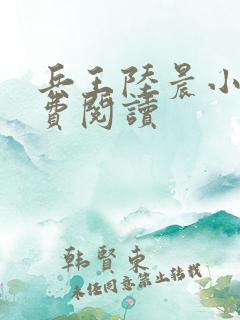 兵王陸晨小
費閱讀
韩賢東
未经同意禁止转载